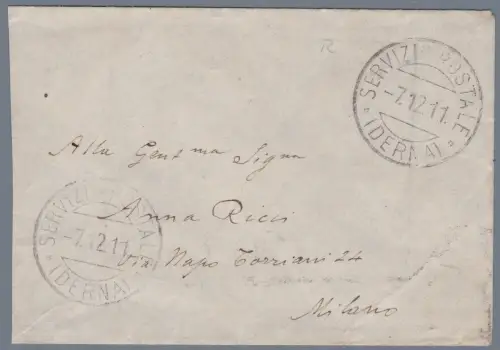 R
SERVIZIO POSTALE
-7.12.11.
(DERNA)
Alla Gent ma Sigra
Anna Ricci
Via Napo Torriani 24
Milano
SERVIZI POSTAL
-7.12.11.
(DERNA)